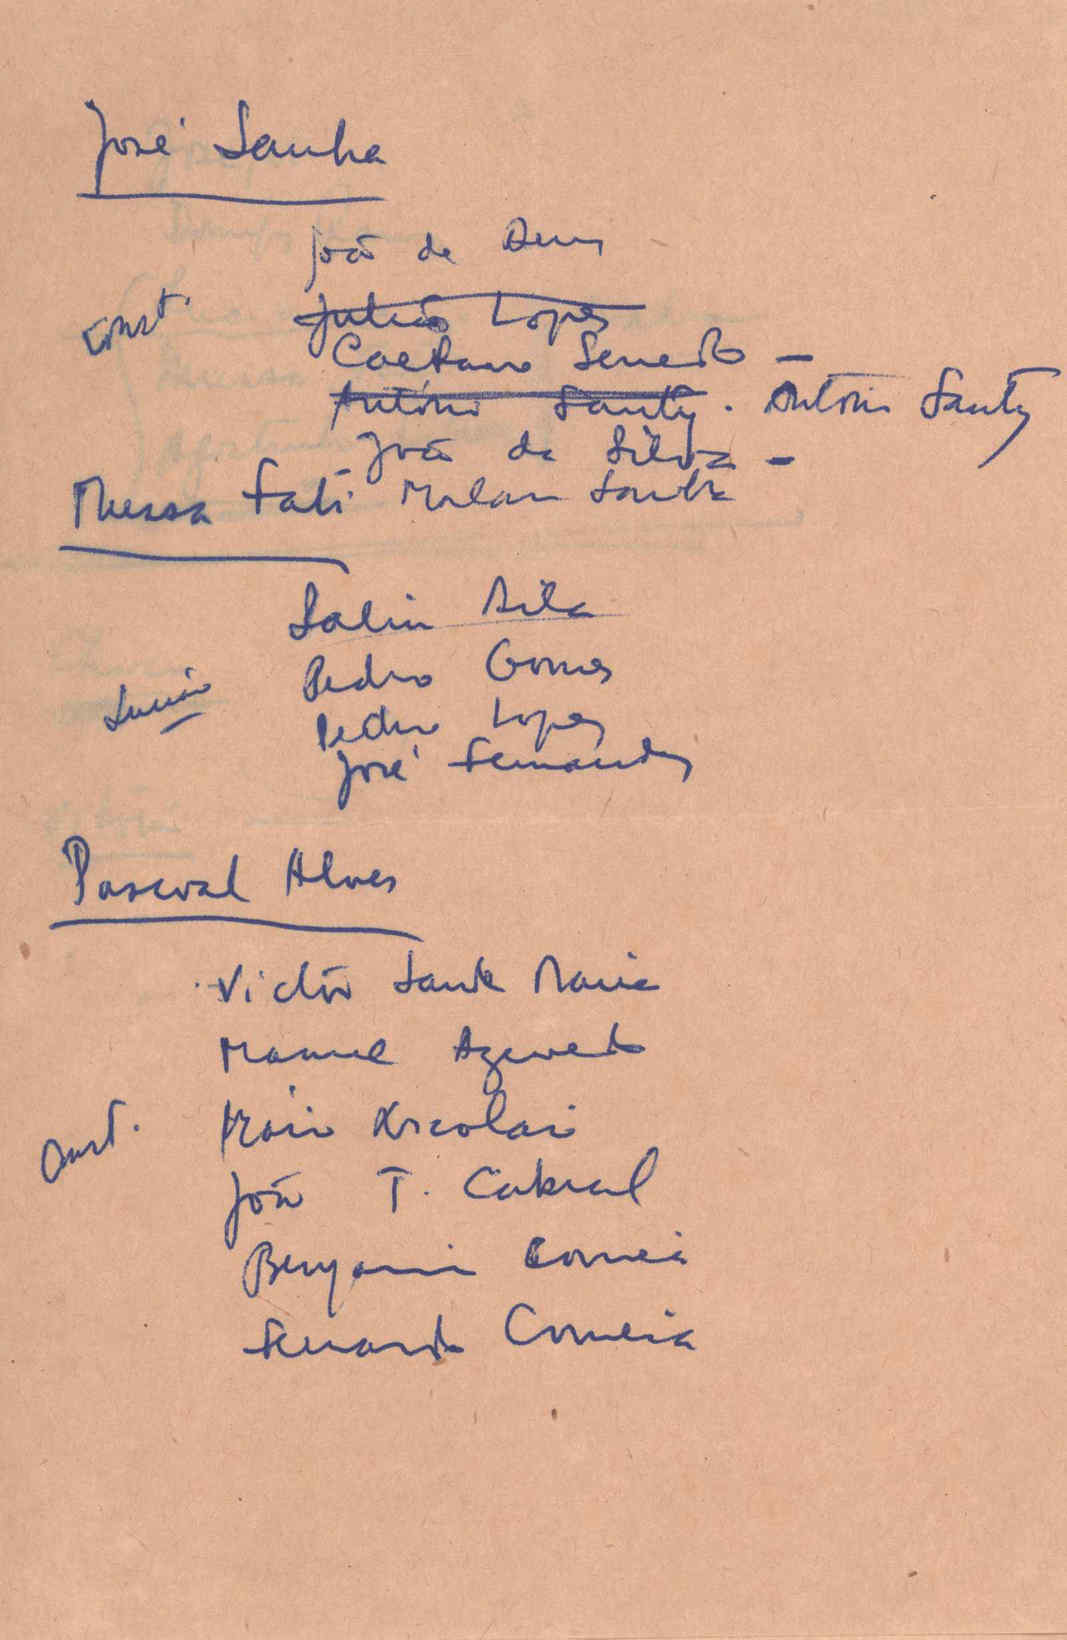 José Sanha
João de Deus
const.
Julião Lopes
Caetano Semedo –
António Santy. António Santy
João da Silva –
Mussa Fati Malan Sanha
Salin Dila
Pedro Gomes
Pedro Lopes
José Fernandes
Pascoal Alves
Victor Santa Maria
Manuel Azevedo
Const.
João T. Cabral
Benjamin Correia
Fernando Correia